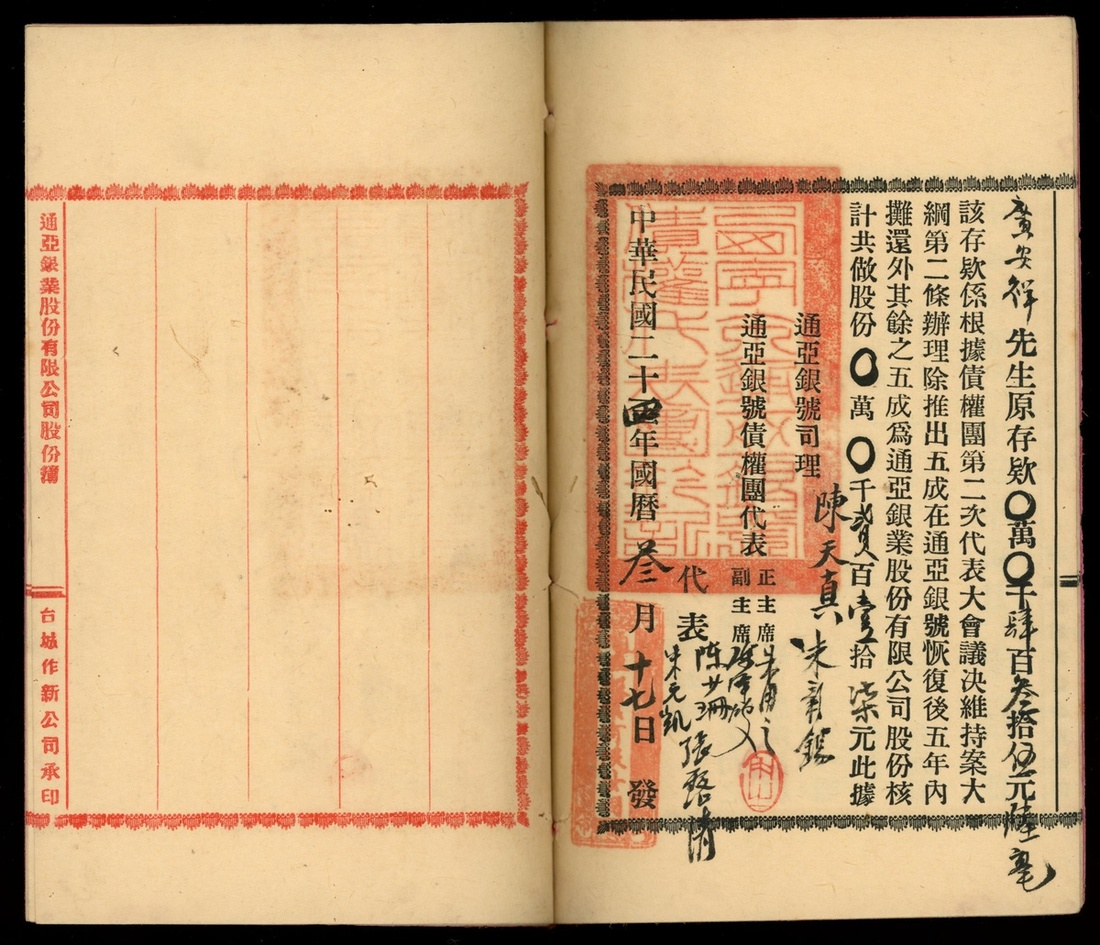 廣安祥先生原存欵〇萬〇千肆百叁拾伍元陸毫
該存欵係根據債權團第二次代表大會議决維持案大
綱第二條辦理除推出五成在通亞銀號恢復後五年內
攤還外其餘之五成爲通亞銀業股份有限公司股份核
計共做股份〇萬〇千貳百壹拾柒元此據
通亞銀號司理 陳天真
通亞銀號債權團代表 正主席
副主席
代表 陈少珊 張啓清
朱元凱
中華民國二十四年國曆叁月十七日 發
通亞銀業股份有限公司股份簿
台城作新公司承印